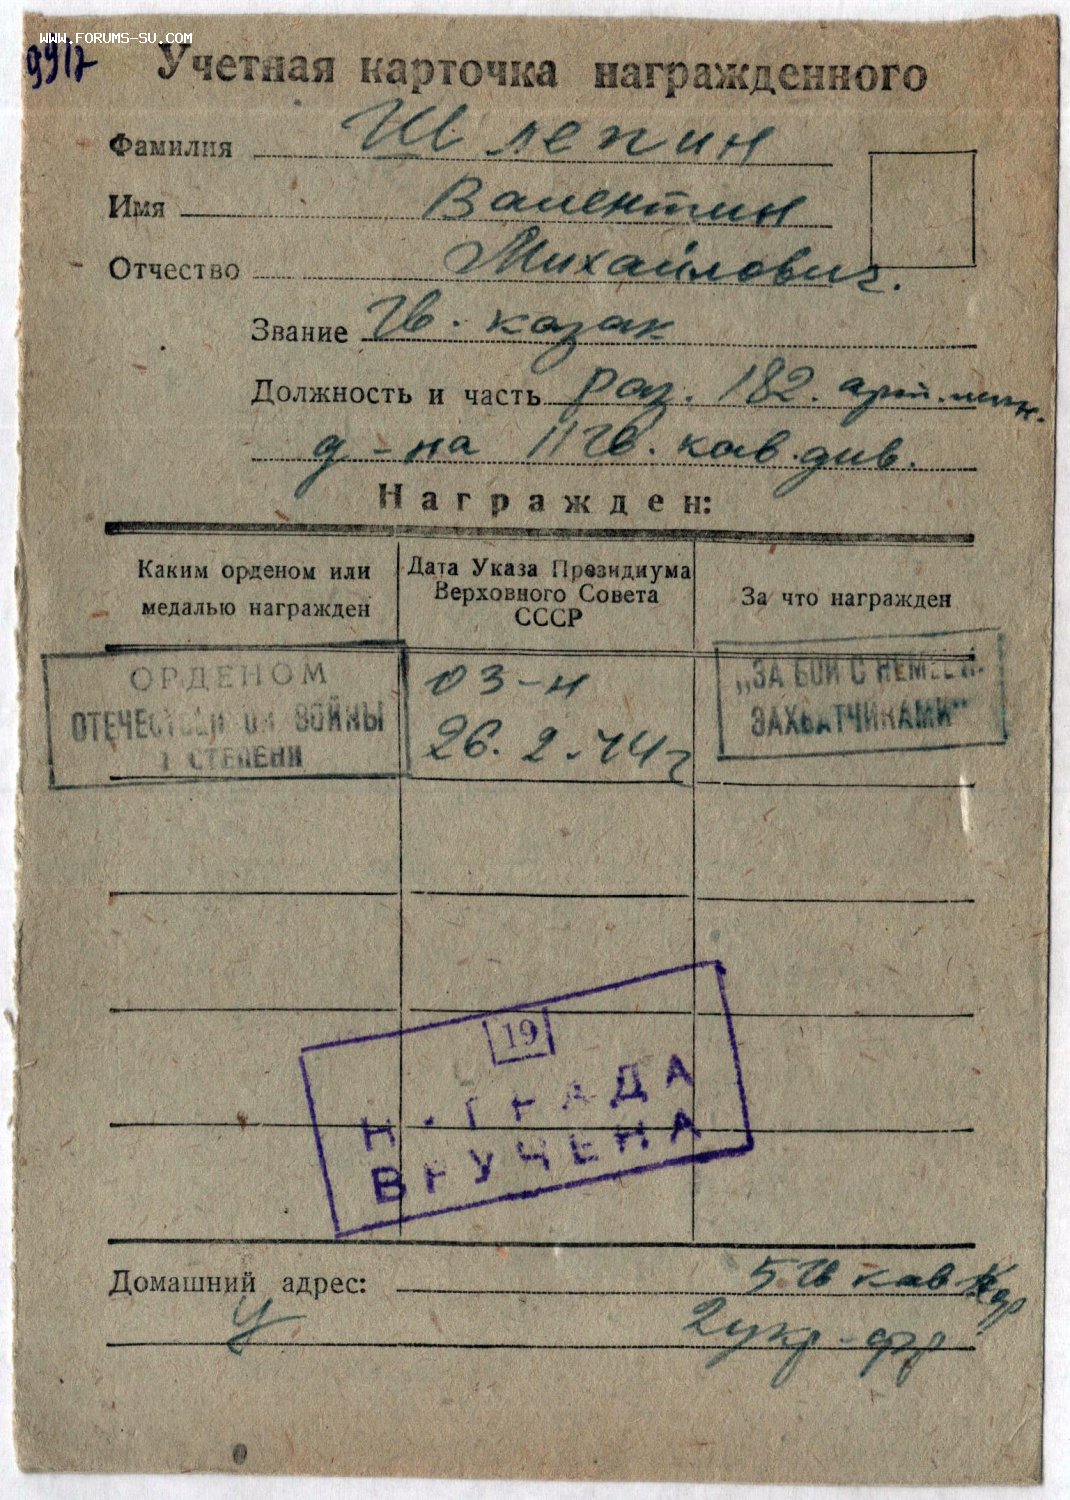 WWW.FORUMS-SU.COM
9917
Учетная карточка награжденного
Фамилия Шлепин
Имя Валентин
Отчество Михайлович.
Звание Гв. казак
Должность и часть раз. 182. арт. мин.
д-на 11 гв. кав. див.
Награжден:
Каким орденом или медалью награжден
Дата Указа Президиума Верховного Совета СССР
За что награжден
ОРДЕНОМ
ОТЕЧЕСТВЕННОЙ ВОЙНЫ
СТЕПЕНИ
03-н
26.2.44г
„ЗА БОИ С НЕМЕЦК.
ЗАХВАТЧИКАМИ"
19
НАГРАДА
ВРУЧЕНА
Домашний адрес: 5 гв кав
У 2 укр-фр